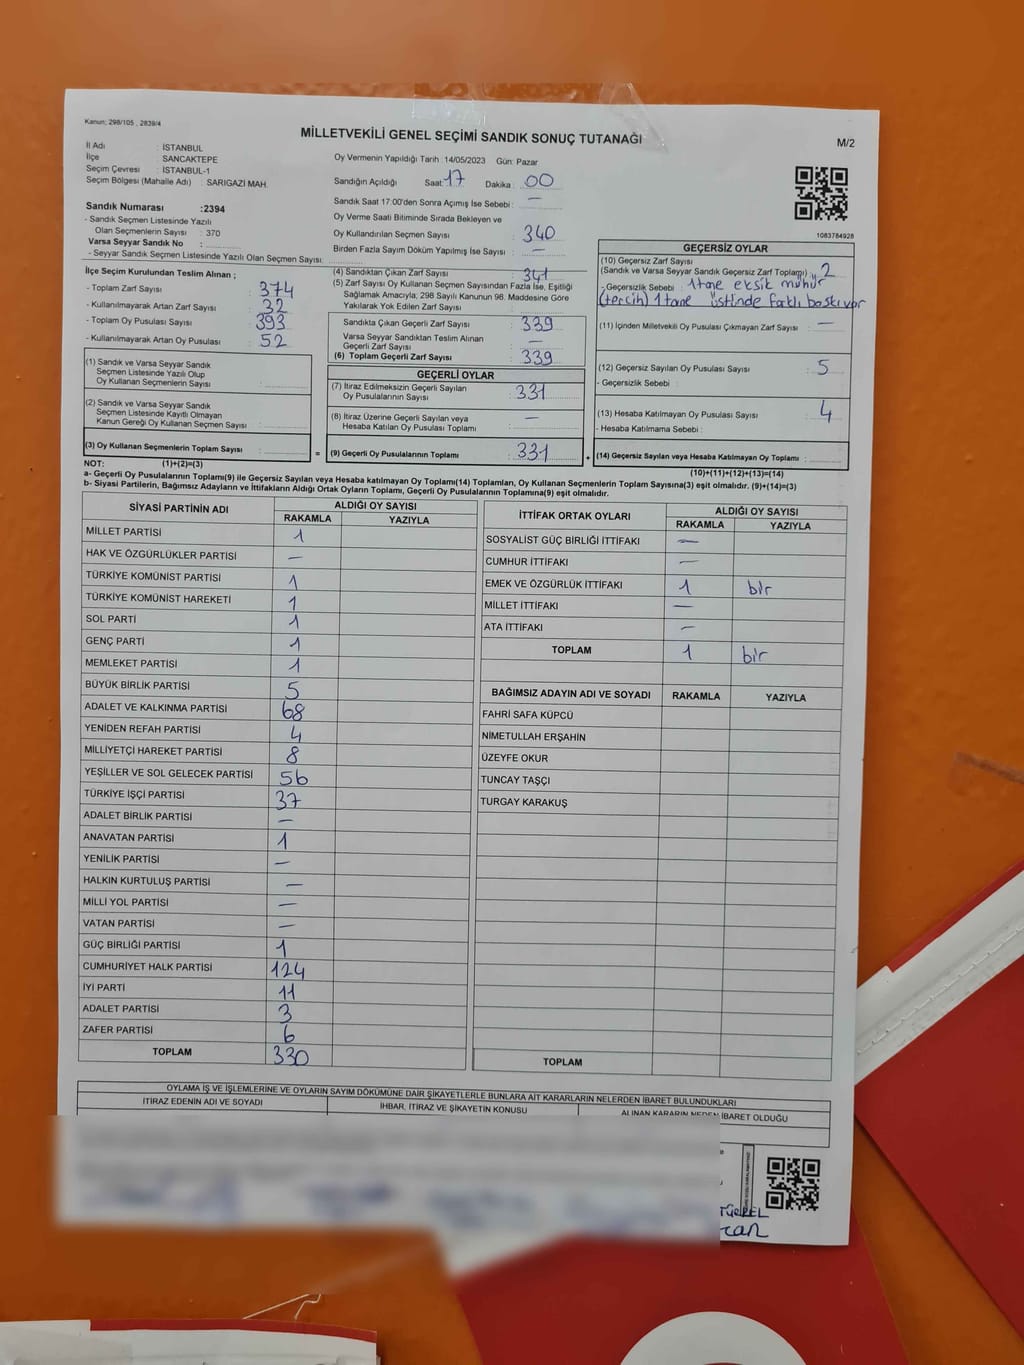 Kanun; 298/105 , 2839/4
MİLLETVEKİLİ GENEL SEÇİMİ SANDIK SONUÇ TUTANAĞI
M/2
İl Adı : İSTANBUL
İlçe : SANCAKTEPE
Seçim Çevresi : İSTANBUL-1
Seçim Bölgesi (Mahalle Adı) : SARIGAZİ MAH.
Sandık Numarası :2394
- Sandık Seçmen Listesinde Yazılı
Olan Seçmenlerin Sayısı : 370
Varsa Seyyar Sandık No :
- Seyyar Sandık Seçmen Listesinde Yazılı Olan Seçmen Sayısı:
Oy Vermenin Yapıldığı Tarih :14/05/2023 Gün: Pazar
Sandığın Açıldığı Saat: 17 Dakika : 00
Sandık Saat 17:00'den Sonra Açımış İse Sebebi : —
Oy Verme Saati Bitiminde Sırada Bekleyen ve
Oy Kullandırılan Seçmen Sayısı : 340
Birden Fazla Sayım Döküm Yapılmış İse Sayısı : —
1083784928
İlçe Seçim Kurulundan Teslim Alınan ;
- Toplam Zarf Sayısı : 374
- Kullanılmayarak Artan Zarf Sayısı : 32
- Toplam Oy Pusulası Sayısı : 393
- Kullanılmayarak Artan Oy Pusulası : 52
(1) Sandık ve Varsa Seyyar Sandık
Seçmen Listesinde Yazılı Olup
Oy Kullanan Seçmenlerin Sayısı :
(2) Sandık ve Varsa Seyyar Sandık
Seçmen Listesinde Kayıtlı Olmayan
Kanun Gereği Oy Kullanan Seçmen Sayısı :
(3) Oy Kullanan Seçmenlerin Toplam Sayısı :
(4) Sandıktan Çıkan Zarf Sayısı : 341
(5) Zarf Sayısı Oy Kullanan Seçmen Sayısından Fazla İse, Eşitliği
Sağlamak Amacıyla; 298 Sayılı Kanunun 98. Maddesine Göre
Yakılarak Yok Edilen Zarf Sayısı :
Sandıkta Çıkan Geçerli Zarf Sayısı : 339
Varsa Seyyar Sandıktan Teslim Alınan
Geçerli Zarf Sayısı : —
(6) Toplam Geçerli Zarf Sayısı : 339
GEÇERLİ OYLAR
(7) İtiraz Edilmeksizin Geçerli Sayılan
Oy Pusulalarının Sayısı : 331
(8) İtiraz Üzerine Geçerli Sayılan veya
Hesaba Katılan Oy Pusulası Toplamı : —
= (9) Geçerli Oy Pusulalarının Toplamı : 331 +
GEÇERSİZ OYLAR
(10) Geçersiz Zarf Sayısı
(Sandık ve Varsa Seyyar Sandık Geçersiz Zarf Toplamı) : 2
- Geçersizlik Sebebi : 1 tane eksik mühür
(tercih) 1 tane üstünde farklı baskı var
(11) İçinden Milletvekili Oy Pusulası Çıkmayan Zarf Sayısı : —
(12) Geçersiz Sayılan Oy Pusulası Sayısı : 5
- Geçersizlik Sebebi :
(13) Hesaba Katılmayan Oy Pusulası Sayısı : 4
- Hesaba Katılmama Sebebi :
(14) Geçersiz Sayılan veya Hesaba Katılmayan Oy Toplamı :
NOT: (1)+(2)=(3)
(10)+(11)+(12)+(13)=(14)
a- Geçerli Oy Pusulalarının Toplamı(9) ile Geçersiz Sayılan veya Hesaba katılmayan Oy Toplamı(14) Toplamları, Oy Kullanan Seçmenlerin Toplam Sayısına(3) eşit olmalıdır. (9)+(14)=(3)
b- Siyasi Partilerin, Bağımsız Adayların ve İttifakların Aldığı Ortak Oyların Toplamı, Geçerli Oy Pusulalarının Toplamına(9) eşit olmalıdır.
SİYASİ PARTİNİN ADI ALDIĞI OY SAYISI
RAKAMLA YAZIYLA
MİLLET PARTİSİ 1
HAK VE ÖZGÜRLÜKLER PARTİSİ —
TÜRKİYE KOMÜNİST PARTİSİ 1
TÜRKİYE KOMÜNİST HAREKETİ 1
SOL PARTİ 1
GENÇ PARTİ 1
MEMLEKET PARTİSİ 1
BÜYÜK BİRLİK PARTİSİ 5
ADALET VE KALKINMA PARTİSİ 68
YENİDEN REFAH PARTİSİ 4
MİLLİYETÇİ HAREKET PARTİSİ 8
YEŞİLLER VE SOL GELECEK PARTİSİ 56
TÜRKİYE İŞÇİ PARTİSİ 37
ADALET BİRLİK PARTİSİ —
ANAVATAN PARTİSİ 1
YENİLİK PARTİSİ —
HALKIN KURTULUŞ PARTİSİ —
MİLLİ YOL PARTİSİ —
VATAN PARTİSİ —
GÜÇ BİRLİĞİ PARTİSİ 1
CUMHURİYET HALK PARTİSİ 124
İYİ PARTİ 11
ADALET PARTİSİ 3
ZAFER PARTİSİ 6
TOPLAM 330
İTTİFAK ORTAK OYLARI ALDIĞI OY SAYISI
RAKAMLA YAZIYLA
SOSYALİST GÜÇ BİRLİĞİ İTTİFAKI —
CUMHUR İTTİFAKI —
EMEK VE ÖZGÜRLÜK İTTİFAKI 1 bir
MİLLET İTTİFAKI —
ATA İTTİFAKI —
TOPLAM 1 bir
BAĞIMSIZ ADAYIN ADI VE SOYADI RAKAMLA YAZIYLA
FAHRİ SAFA KÜPCÜ
NİMETULLAH ERŞAHİN
ÜZEYFE OKUR
TUNCAY TAŞÇI
TURGAY KARAKUŞ
TOPLAM
OYLAMA İŞ VE İŞLEMLERİNE VE OYLARIN SAYIM DÖKÜMÜNE DAİR ŞİKAYETLERLE BUNLARA AİT KARARLARIN NELERDEN İBARET BULUNDUKLARI
İTİRAZ EDENİN ADI VE SOYADI İHBAR, İTİRAZ VE ŞİKAYETİN KONUSU ALINAN KARARIN NEDEN İBARET OLDUĞU